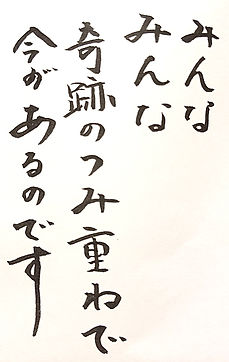 みんな
みんな
奇跡のつみ重ねで
今があるのです